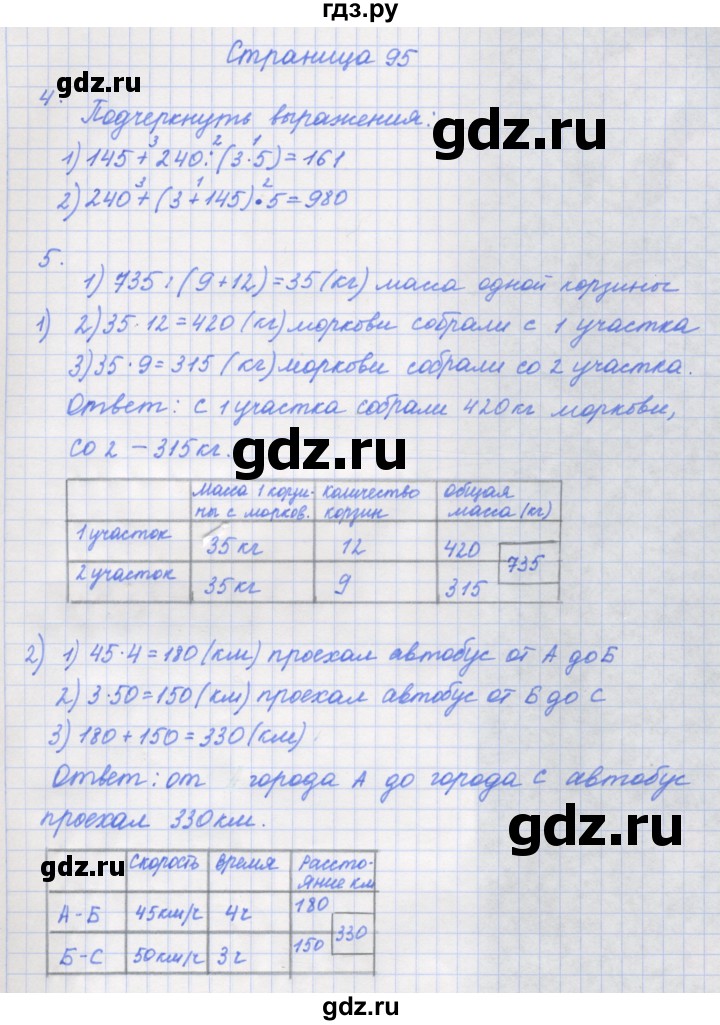 гдз.ру
Страница 95
gdz.ru
4.
Подчеркнуть выражения:
gdz.ru
3 2 1
1) 145 + 240 : (3 · 5) = 161
3 1 2
2) 240 + (3 + 145) · 5 = 980
5.
1) 735 : (9 + 12) = 35 (кг) масса одной корзины
1) 2) 35 · 12 = 420 (кг) моркови собрали с 1 участка
3) 35 · 9 = 315 (кг) моркови собрали со 2 участка.
Ответ: с 1 участка собрали 420 кг моркови,
со 2 – 315 кг.
gdz.ru
Масса 1 корзи- Количество Общая
ны с морков. корзин масса (кг)
1 участок 35 кг 12 420
735
2 участок 35 кг 9 315
2) 1) 45 · 4 = 180 (км) проехал автобус от А до Б
2) 3 · 50 = 150 (км) проехал автобус от Б до С
3) 180 + 150 = 330 (км)
Ответ: от города А до города С автобус
проехал 330 км.
gdz.ru
gdz.ru
Скорость Время Рассто-
яние км
А - Б 45 км/ч 4 ч 180
330
Б - С 50 км/ч 3 ч 150
gdz.ru